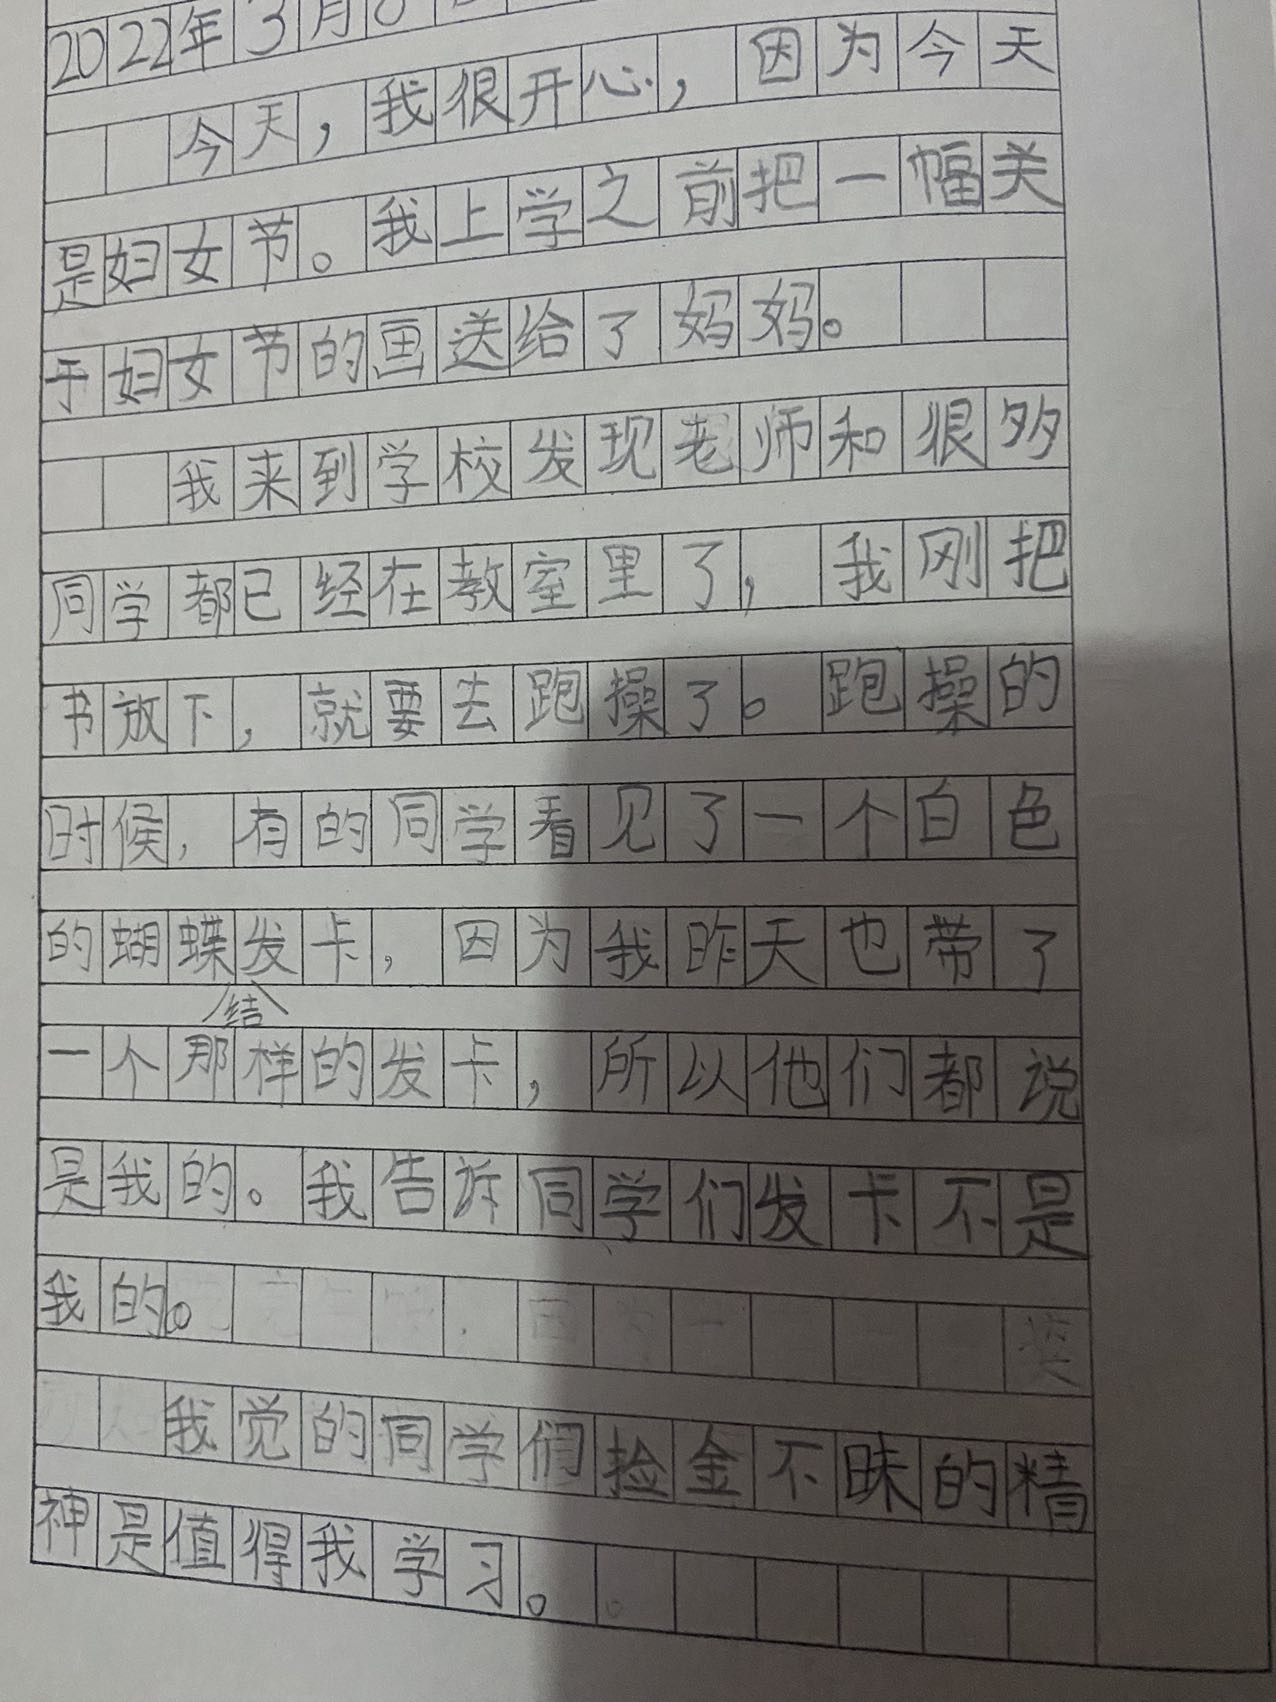 2022年3月8日
今天，我很开心，因为今天
是妇女节。我上学之前把一幅关
于妇女节的画送给了妈妈。
我来到学校发现老师和很多
同学都已经在教室里了，我刚把
书放下，就要去跑操了。跑操的
时候，有的同学看见了一个白色
的蝴蝶发卡，因为我昨天也带了
结
一个那样的发卡，所以他们都说
是我的。我告诉同学们发卡不是
我的。
我觉的同学们捡金不昧的精
神是值得我学习。